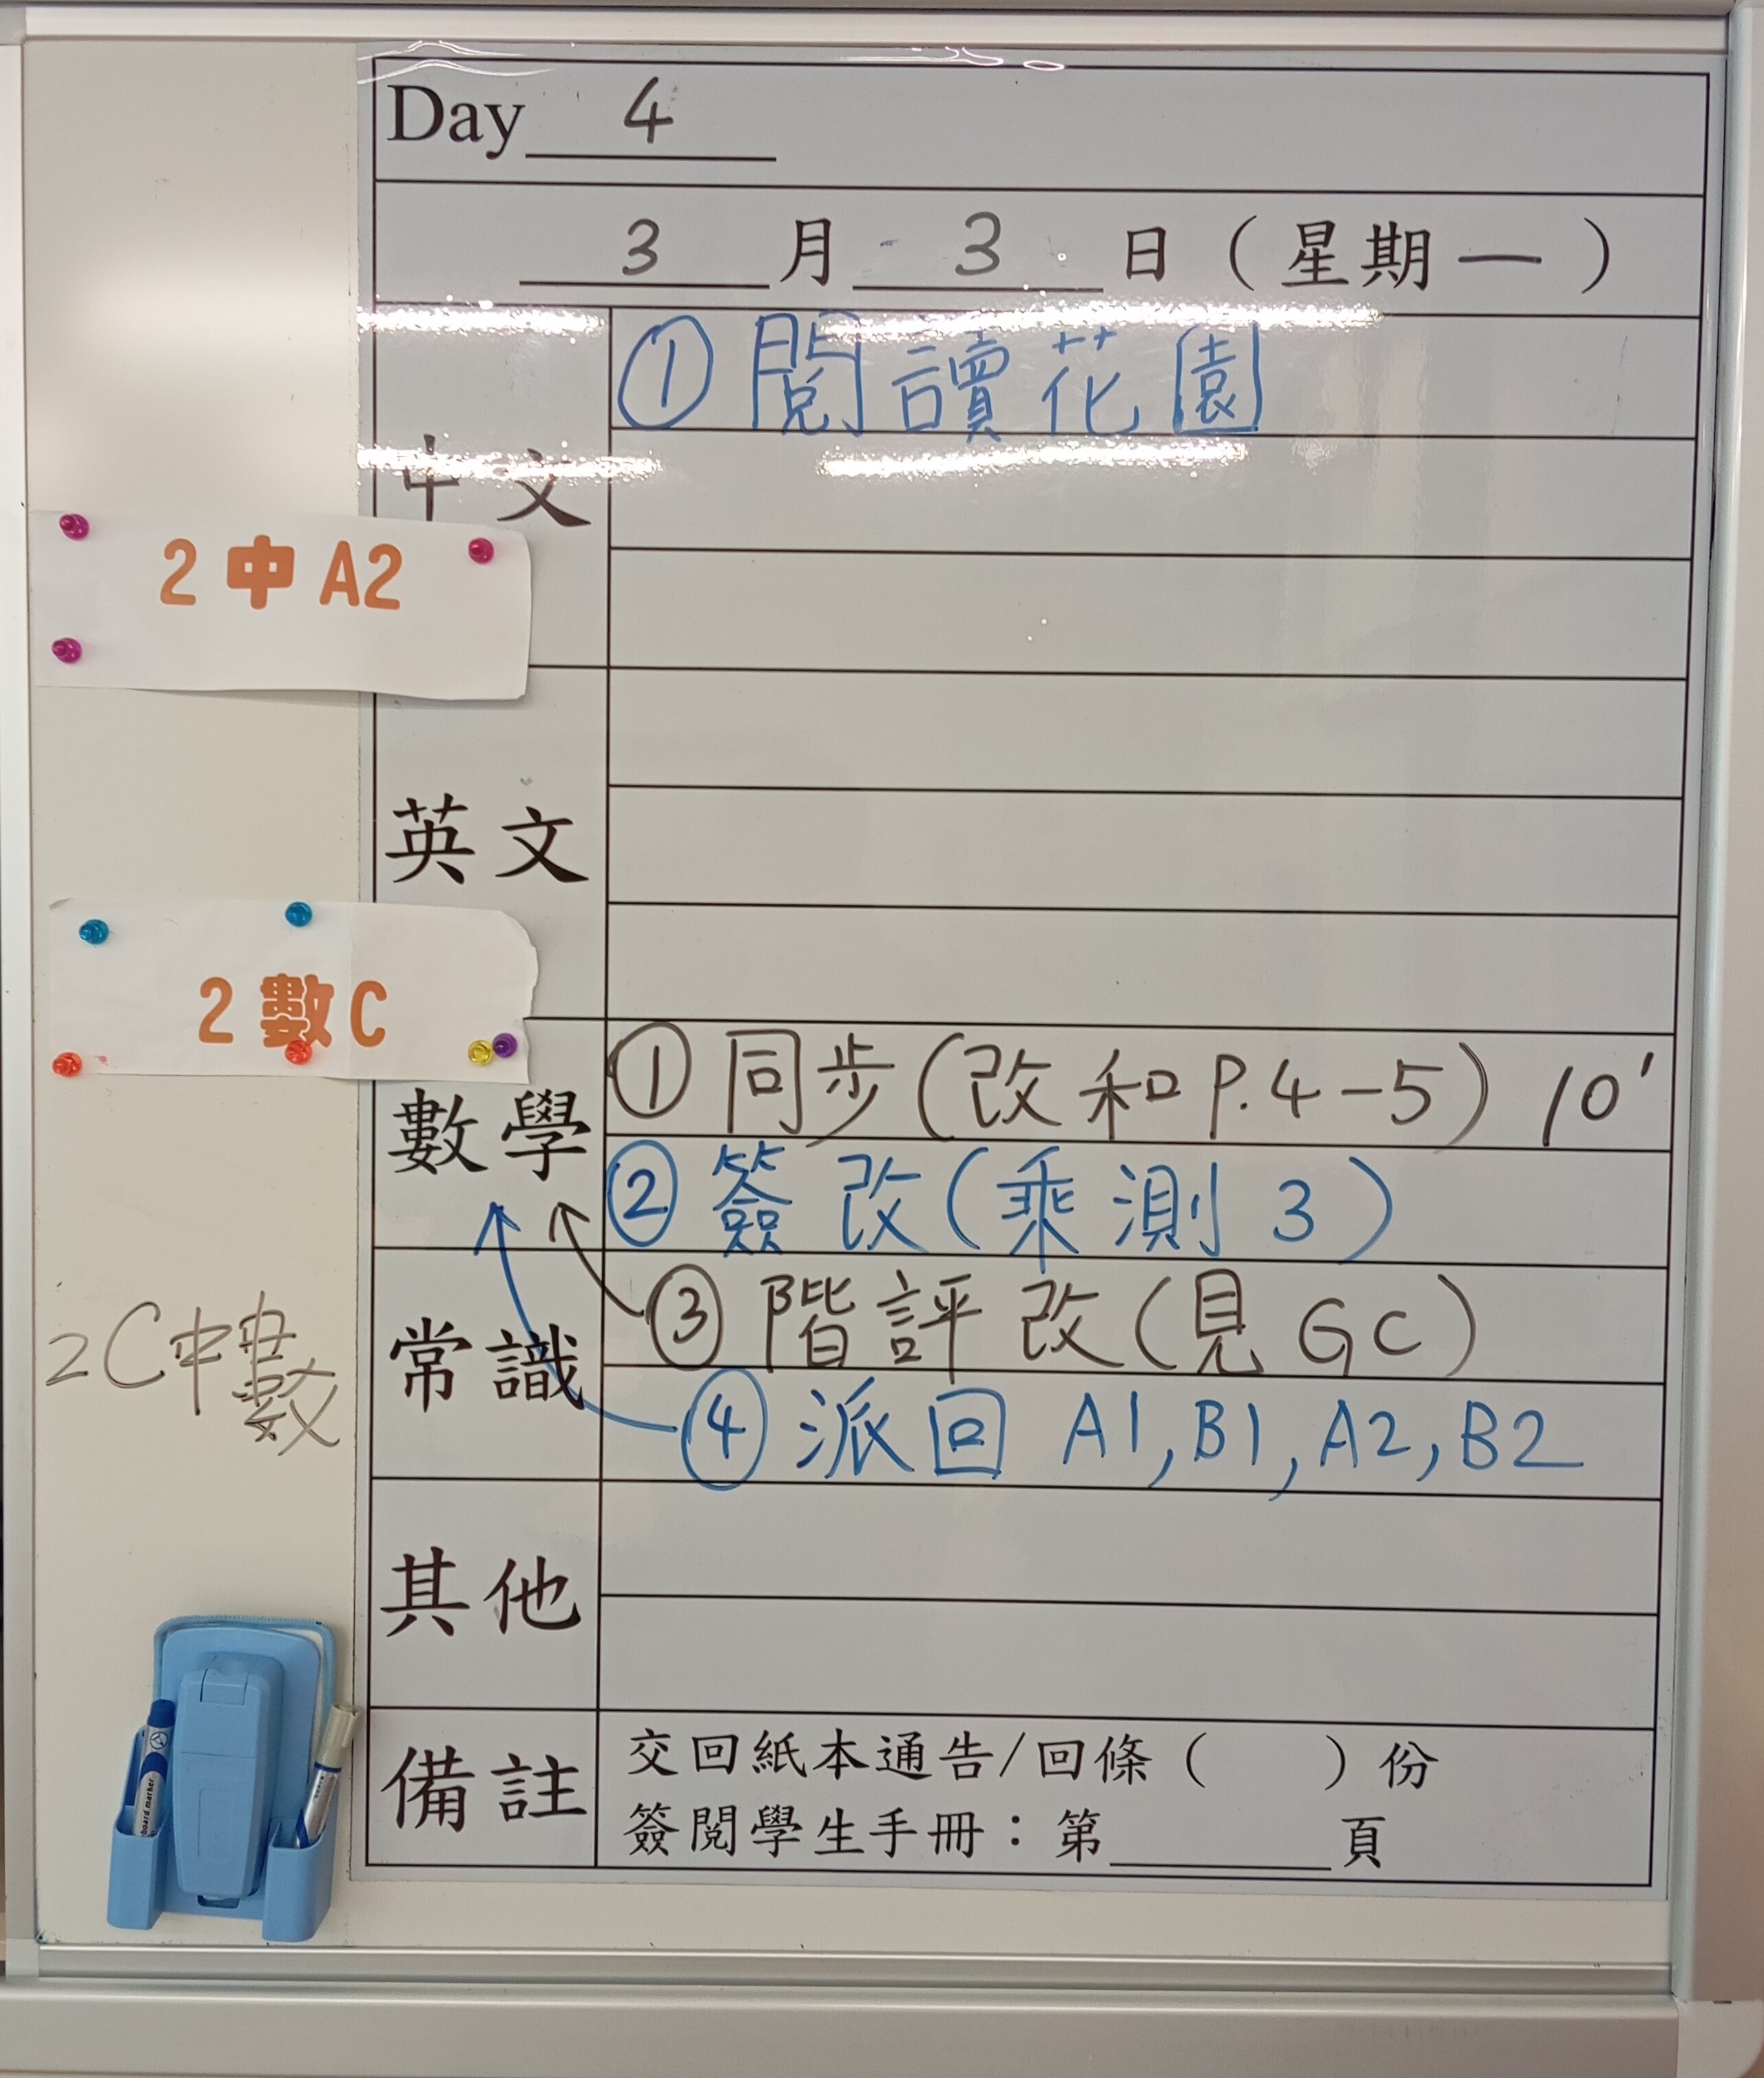 Day 4
3 月 3 日（星期一）
中文
① 閱讀花園
2 中 A2
英文
2 數 C
數學
① 同步(改和P.4-5) 10'
② 簽改(乘測3)
常識
③ 階評改(見GC)
④ 派回 A1, B1, A2, B2
2C中數
其他
備註
交回紙本通告/回條（　　）份
簽閱學生手冊：第________頁
board marker